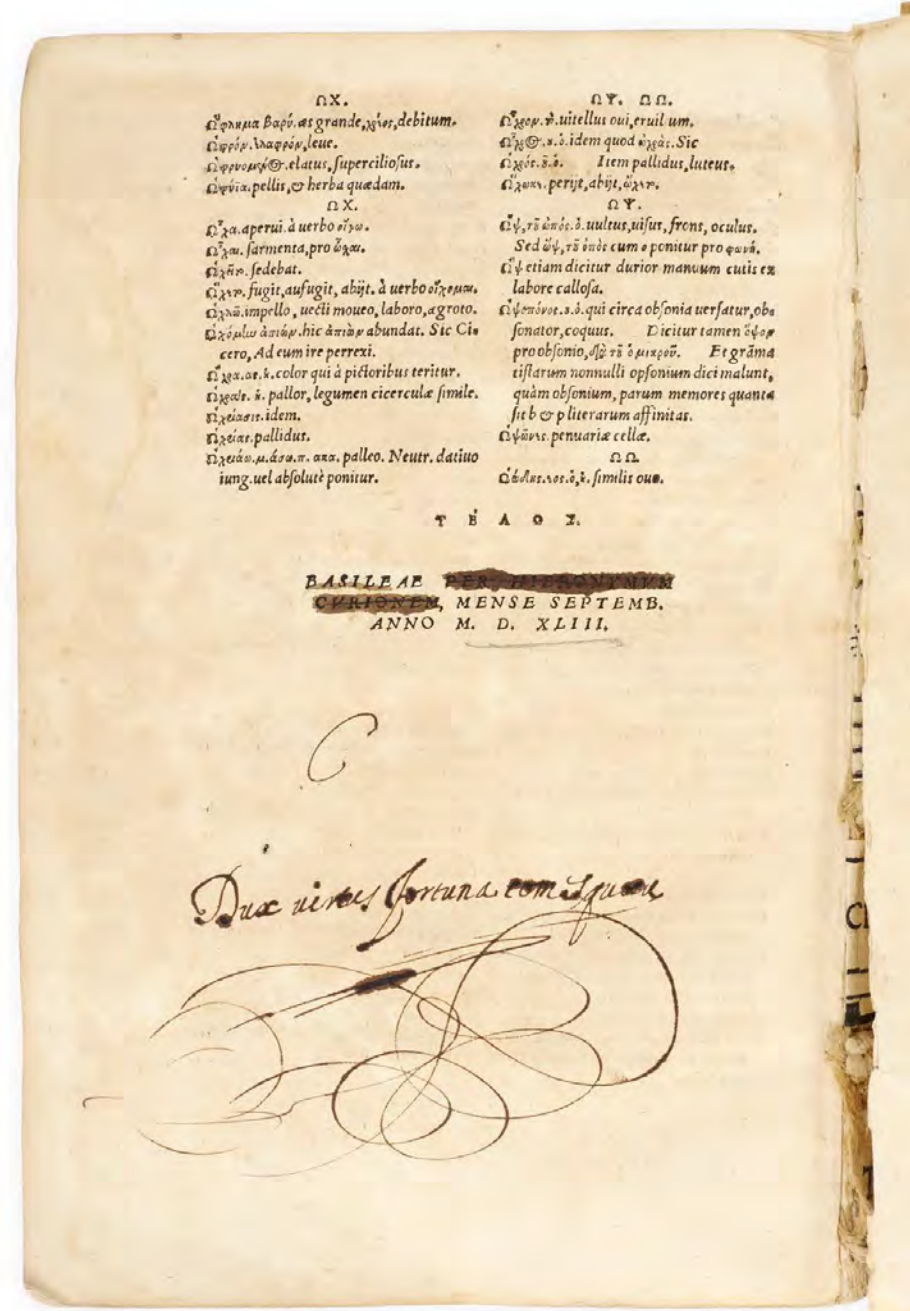 ΩΧ.
Ὤφλημα βαρύ. æs grande, χρέος, debitum.
Ὠφρόν. ἐλαφρόν, leue.
Ὠφρυομένος. elatus, superciliosus.
Ὠφύϊα. pellis, & herba quædam.
ΩΧ.
Ὦχα. aperui. à uerbo οἴγω.
Ὦχαι. sarmenta, pro ὦχαι.
sedebat.
Ὤχετο. fugit, aufugit, abijt. à uerbo οἴχομαι.
Ὠχλῶ. impello, uecti moueo, laboro, ægroto.
Ὠχόμlω ἀπιὼν. hic ἀπιὼν abundat. Sic Ci=
cero, Ad eum ire perrexi.
Ὤχρα. ας. ἡ. color qui à pictoribus teritur.
ἡ. pallor, legumen cicerculæ simile.
Ὠχρίασις. idem.
Ὠχρίας. pallidus.
Ὠχριάω. μ. άσω. π. ακα. palleo. Neutr. datiuo
iung. uel absolutè ponitur.
ΩΨ. ΩΩ.
Ὦχρον. τὸ. uitellus oui, eruil um.
Ὦχρος. ου. ὁ. idem quod Sic
Ὠχρός. οῦ. ὁ. Item pallidus, luteus.
Ὤχωκε. perijt, abijt, ᾤχετο.
ΩΨ.
Ὦψ, τοῦ ὠπός. ὁ. uultus, uisus, frons, oculus.
Sed ὤψ, τοῦ ὀπὸς cum ο ponitur pro φωνή.
Ὦψ etiam dicitur durior manuum cutis ex
labore callosa.
Ὠψοπόνος. ου. ὁ. qui circa obsonia uersatur, obs
sonator, coquus. Dicitur tamen ὄψον
pro obsonio, διὰ τοῦ ὀ μικροῦ. Et grāma
tistarum nonnulli opsonium dici malunt,
quàm obsonium, parum memores quanta
sit b & p literarum affinitas.
Ὠψῶνες. penuariæ cellæ.
ΩΩ.
Ὠώδης. εος. ὁ, ἡ. similis ouo.
ΤΈΛΟΣ.
BASILEAE PER HIERONYMVM
CVRIONEM, MENSE SEPTEMB.
ANNO M. D. XLIII.
C
Dux virtus fortuna comesque